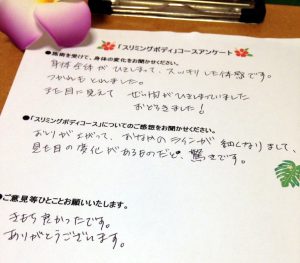 「スリミングボディ」コースアンケート
●施術を受けて、身体の変化をお聞かせください。
身体全体がひきしまって、スッキリした体感です。
つかれもとれました。
また目に見えて ぜい肉がひきしまっていました
おどろきました！
●「スリミングボディコース」についてのご感想をお聞かせください。
おしりが上がって、おなかのラインが細くなりまして、
見た目の変化があるものだと、驚きです。
●ご意見等ひとことお願いいたします。
きもち良かったです。
ありがとうございます。